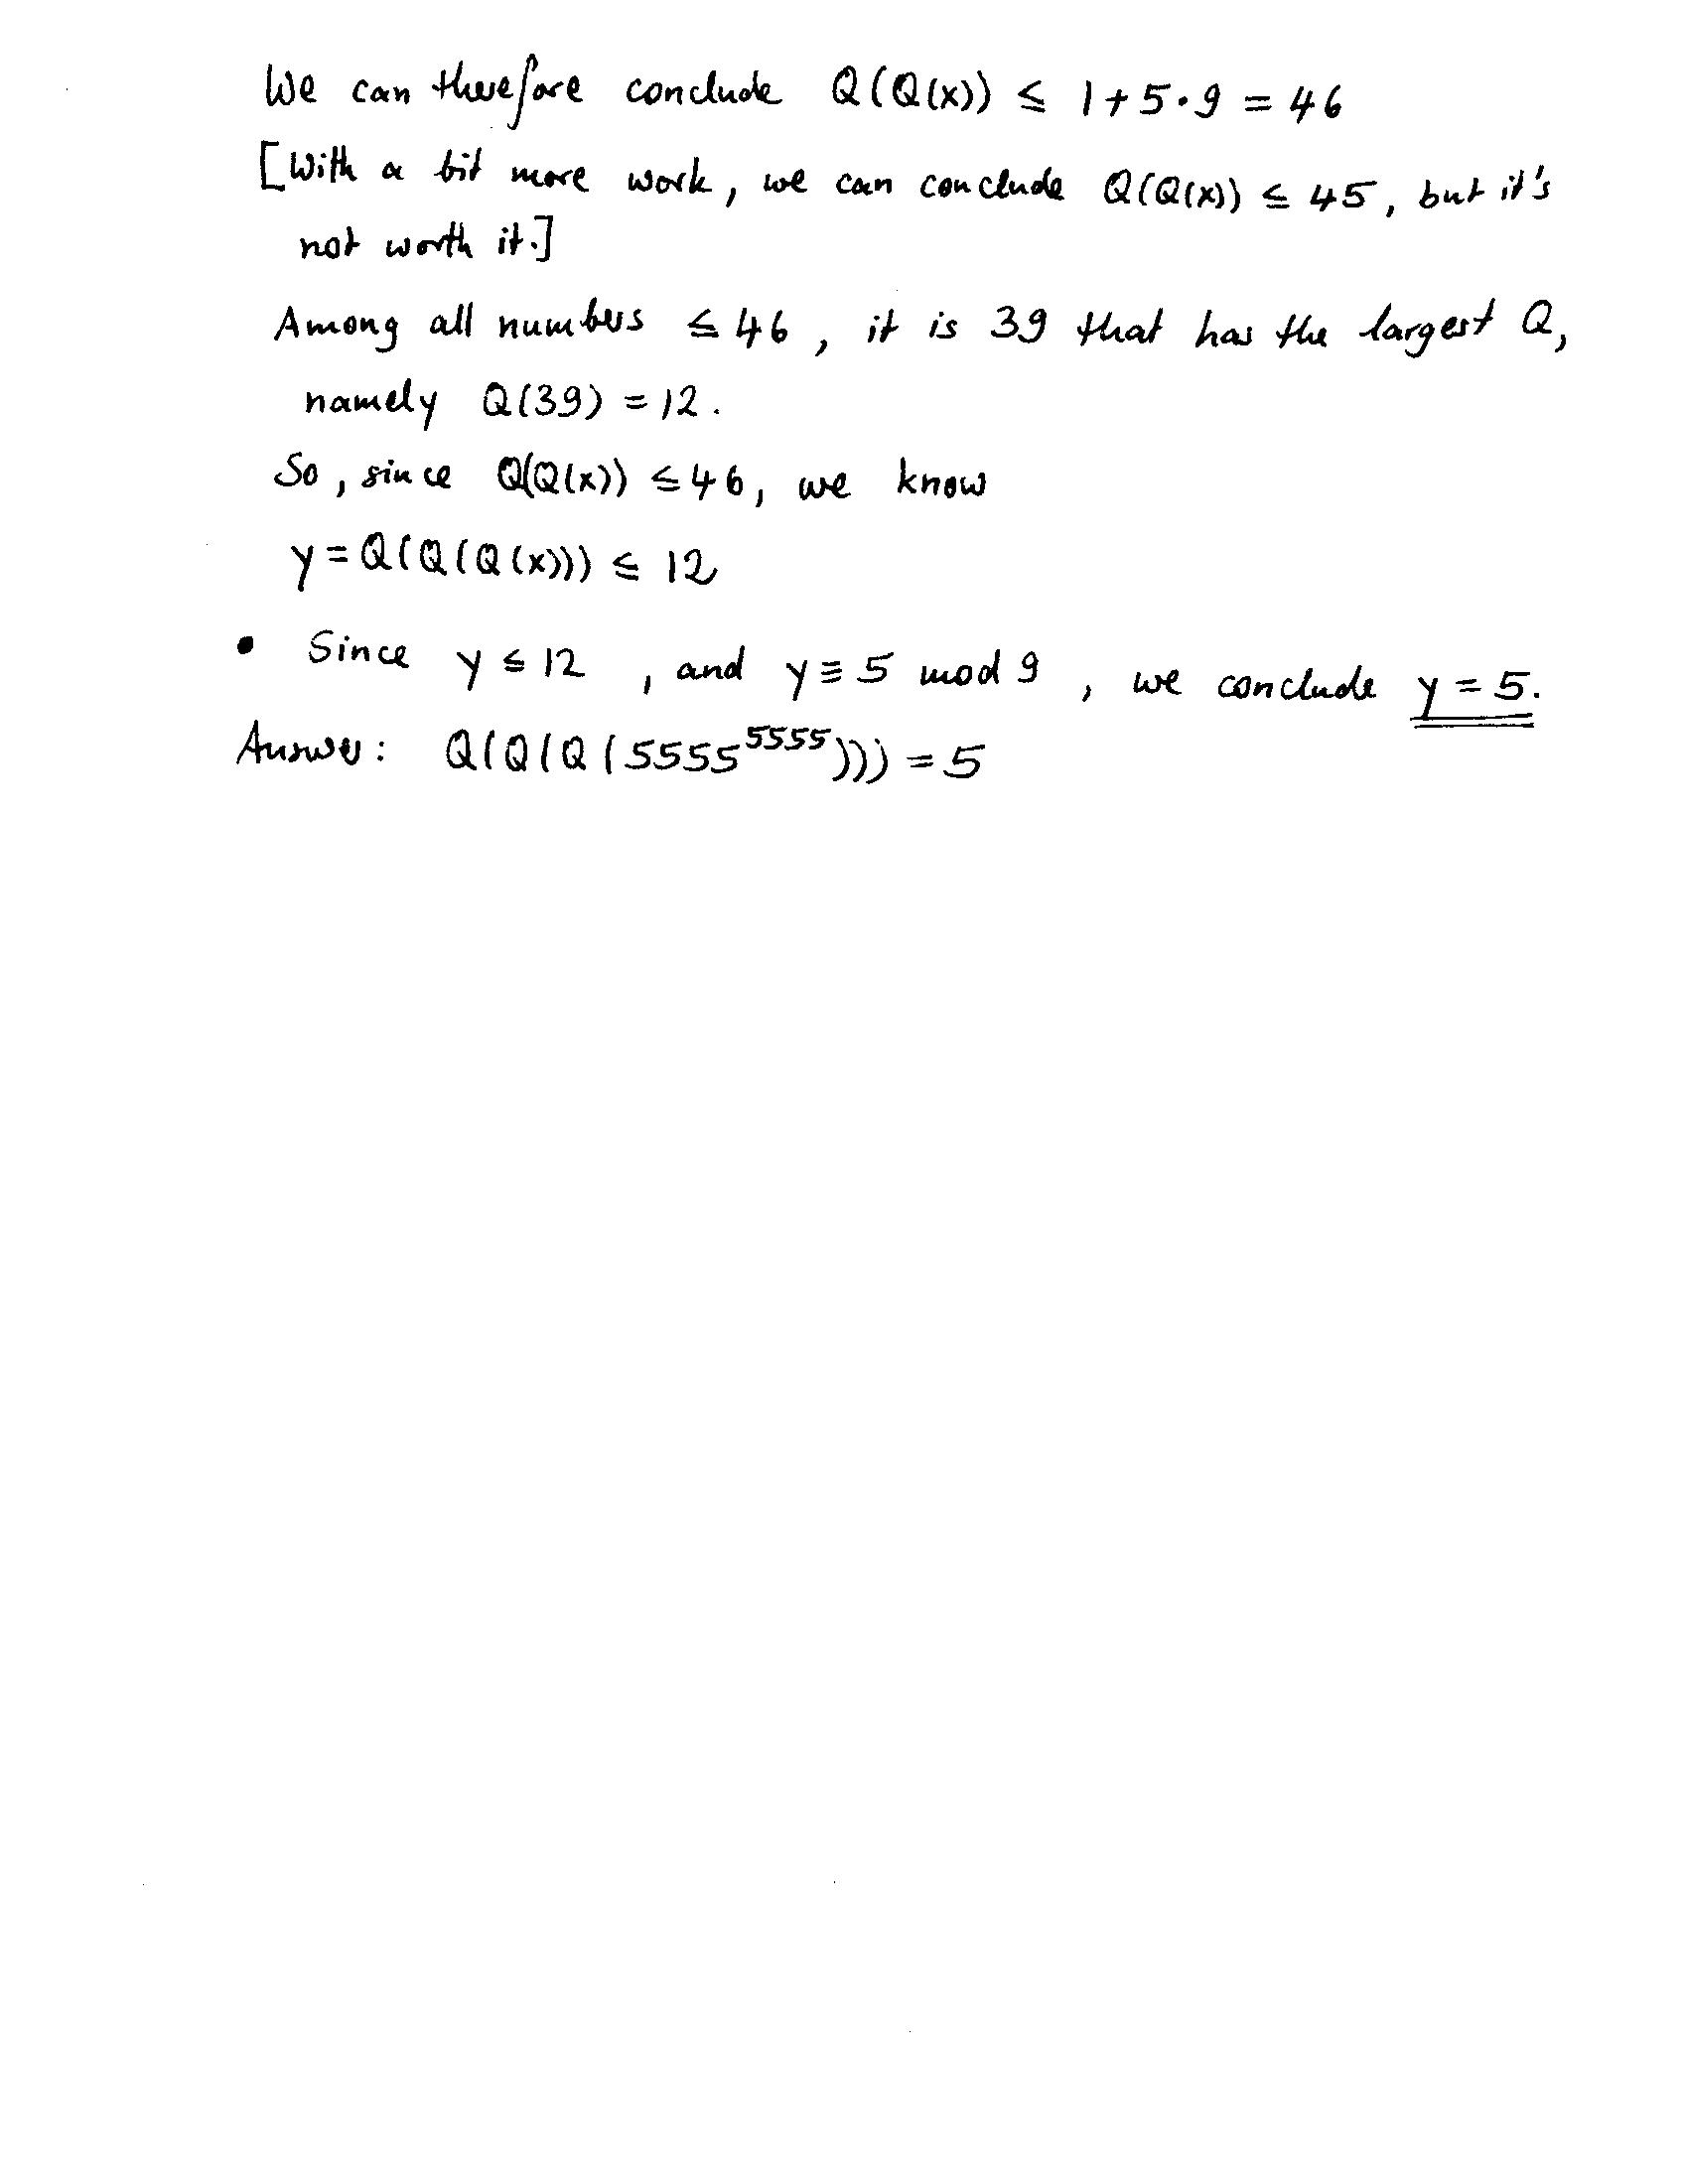 We can therefore conclude Q(Q(x)) ≤ 1+5·9 = 46
[With a bit more work, we can conclude Q(Q(x)) ≤ 45, but it's
not worth it.]
Among all numbers ≤ 46, it is 39 that has the largest Q,
namely Q(39) = 12.
So, since Q(Q(x)) ≤ 46, we know
y = Q(Q(Q(x))) ≤ 12
• Since y ≤ 12, and y ≡ 5 mod 9, we conclude y = 5.
Answer: Q(Q(Q(5555⁵⁵⁵⁵))) = 5